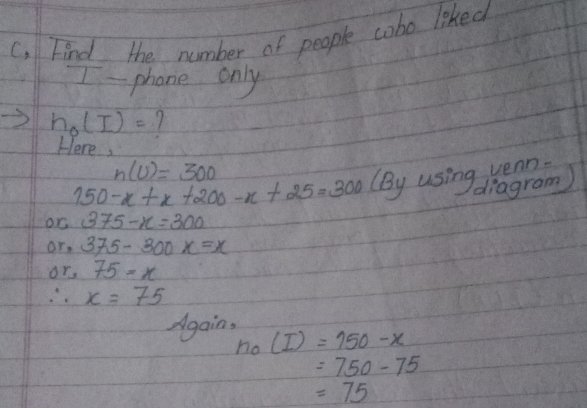 C, Find the number of people who liked
I-phone only
→ n₀(I) = ?
Here,
n(U) = 300
150-x+x+200-x+25=300 (By using venn-diagram)
or, 375-x=300
or, 375-300 x=x
or, 75=x
∴ x = 75
Again,
n₀ (I) = 150-x
= 150-75
= 75